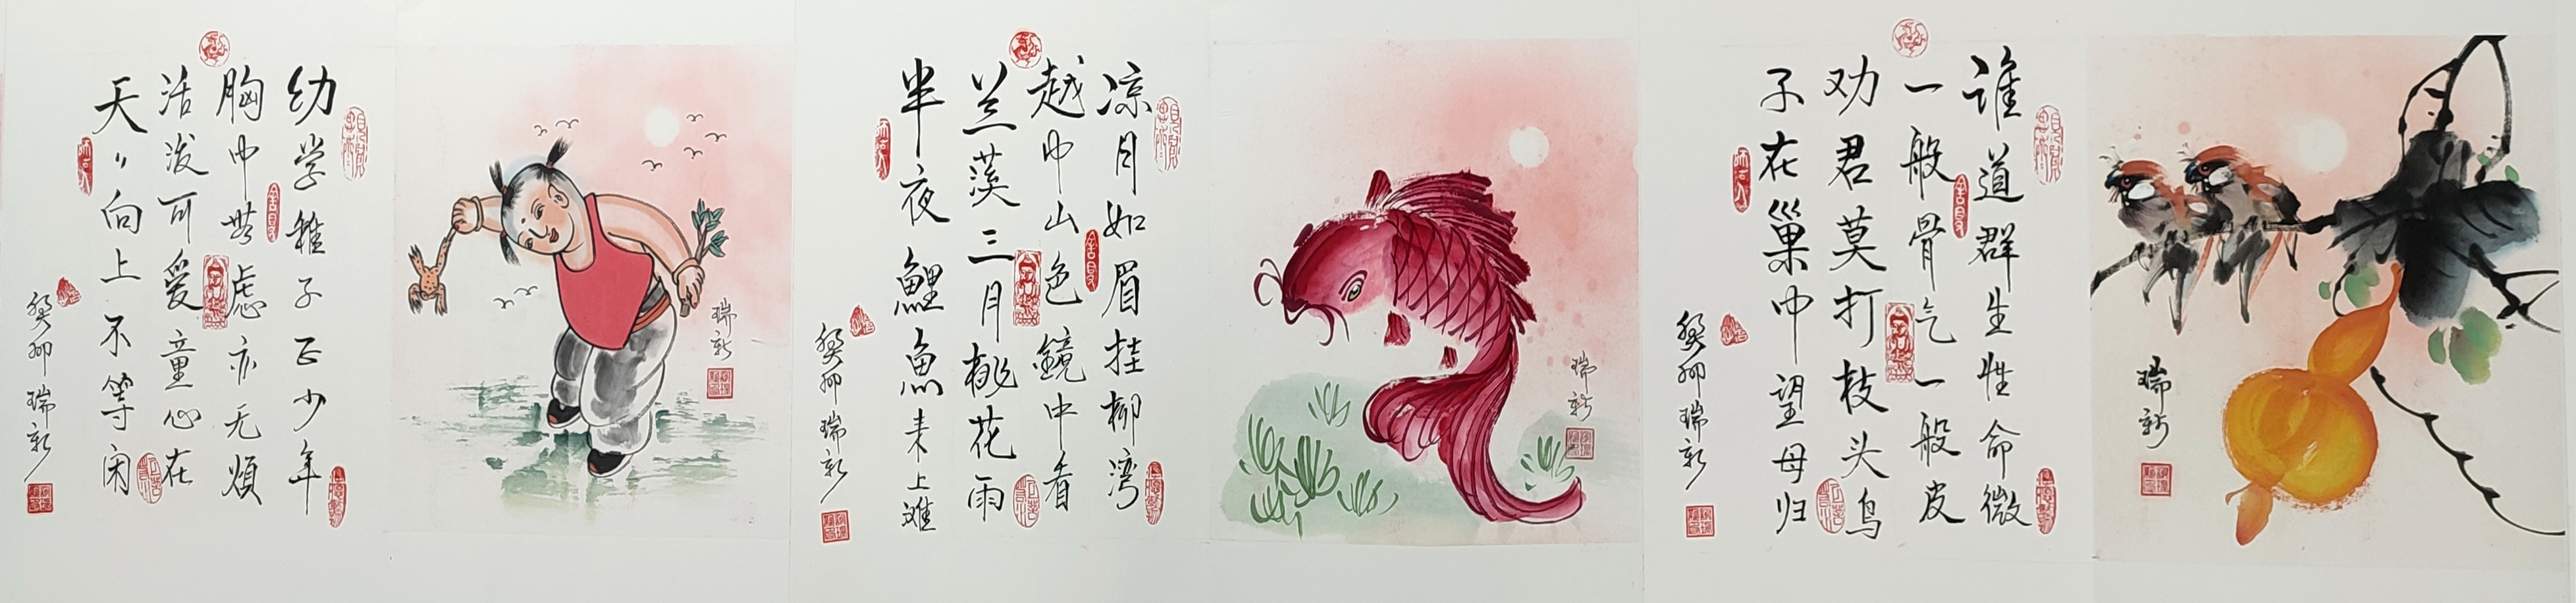 瑞新
谁道群生性命微
一般骨气一般皮
劝君莫打枝头鸟
子在巢中望母归
癸卯瑞新
瑞新
凉月如眉挂柳湾
越中山色鏡中看
兰溪三月桃花雨
半夜鯉魚来上滩
癸卯瑞新
瑞新
幼学稚子正少年
胸中無虑亦无煩
活泼可爱童心在
天〃向上不等闲
癸卯瑞新